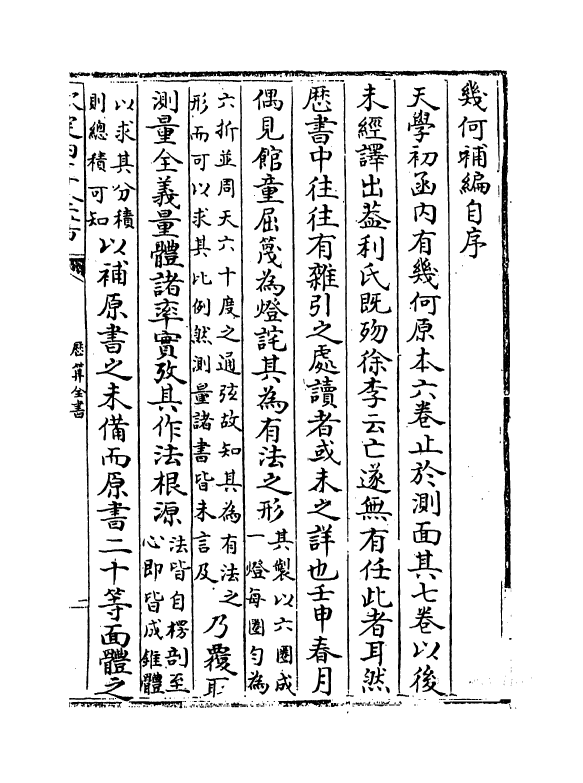 幾何補編自序
天學初函内有幾何原本六卷止於測面其七卷以後
未經譯出葢利氏既歿徐李云亡遂無有任此者耳然
厯書中往往有雜引之處讀者或未之詳也壬申春月
偶見館童屈篾為燈詫其為有法之形
其製以六圈成
一燈每圈勻為
六折並周天六十度之通弦故知其為有法之
形而可以求其比例然測量諸書皆未言及
乃覆取
測量全義量體諸率實攷其作法根源
法皆自楞剖至
心即皆成錐體
以求其分積
則總積可知
以補原書之未備而原書二十等面體之
欽定四庫全書
厯算全書
一